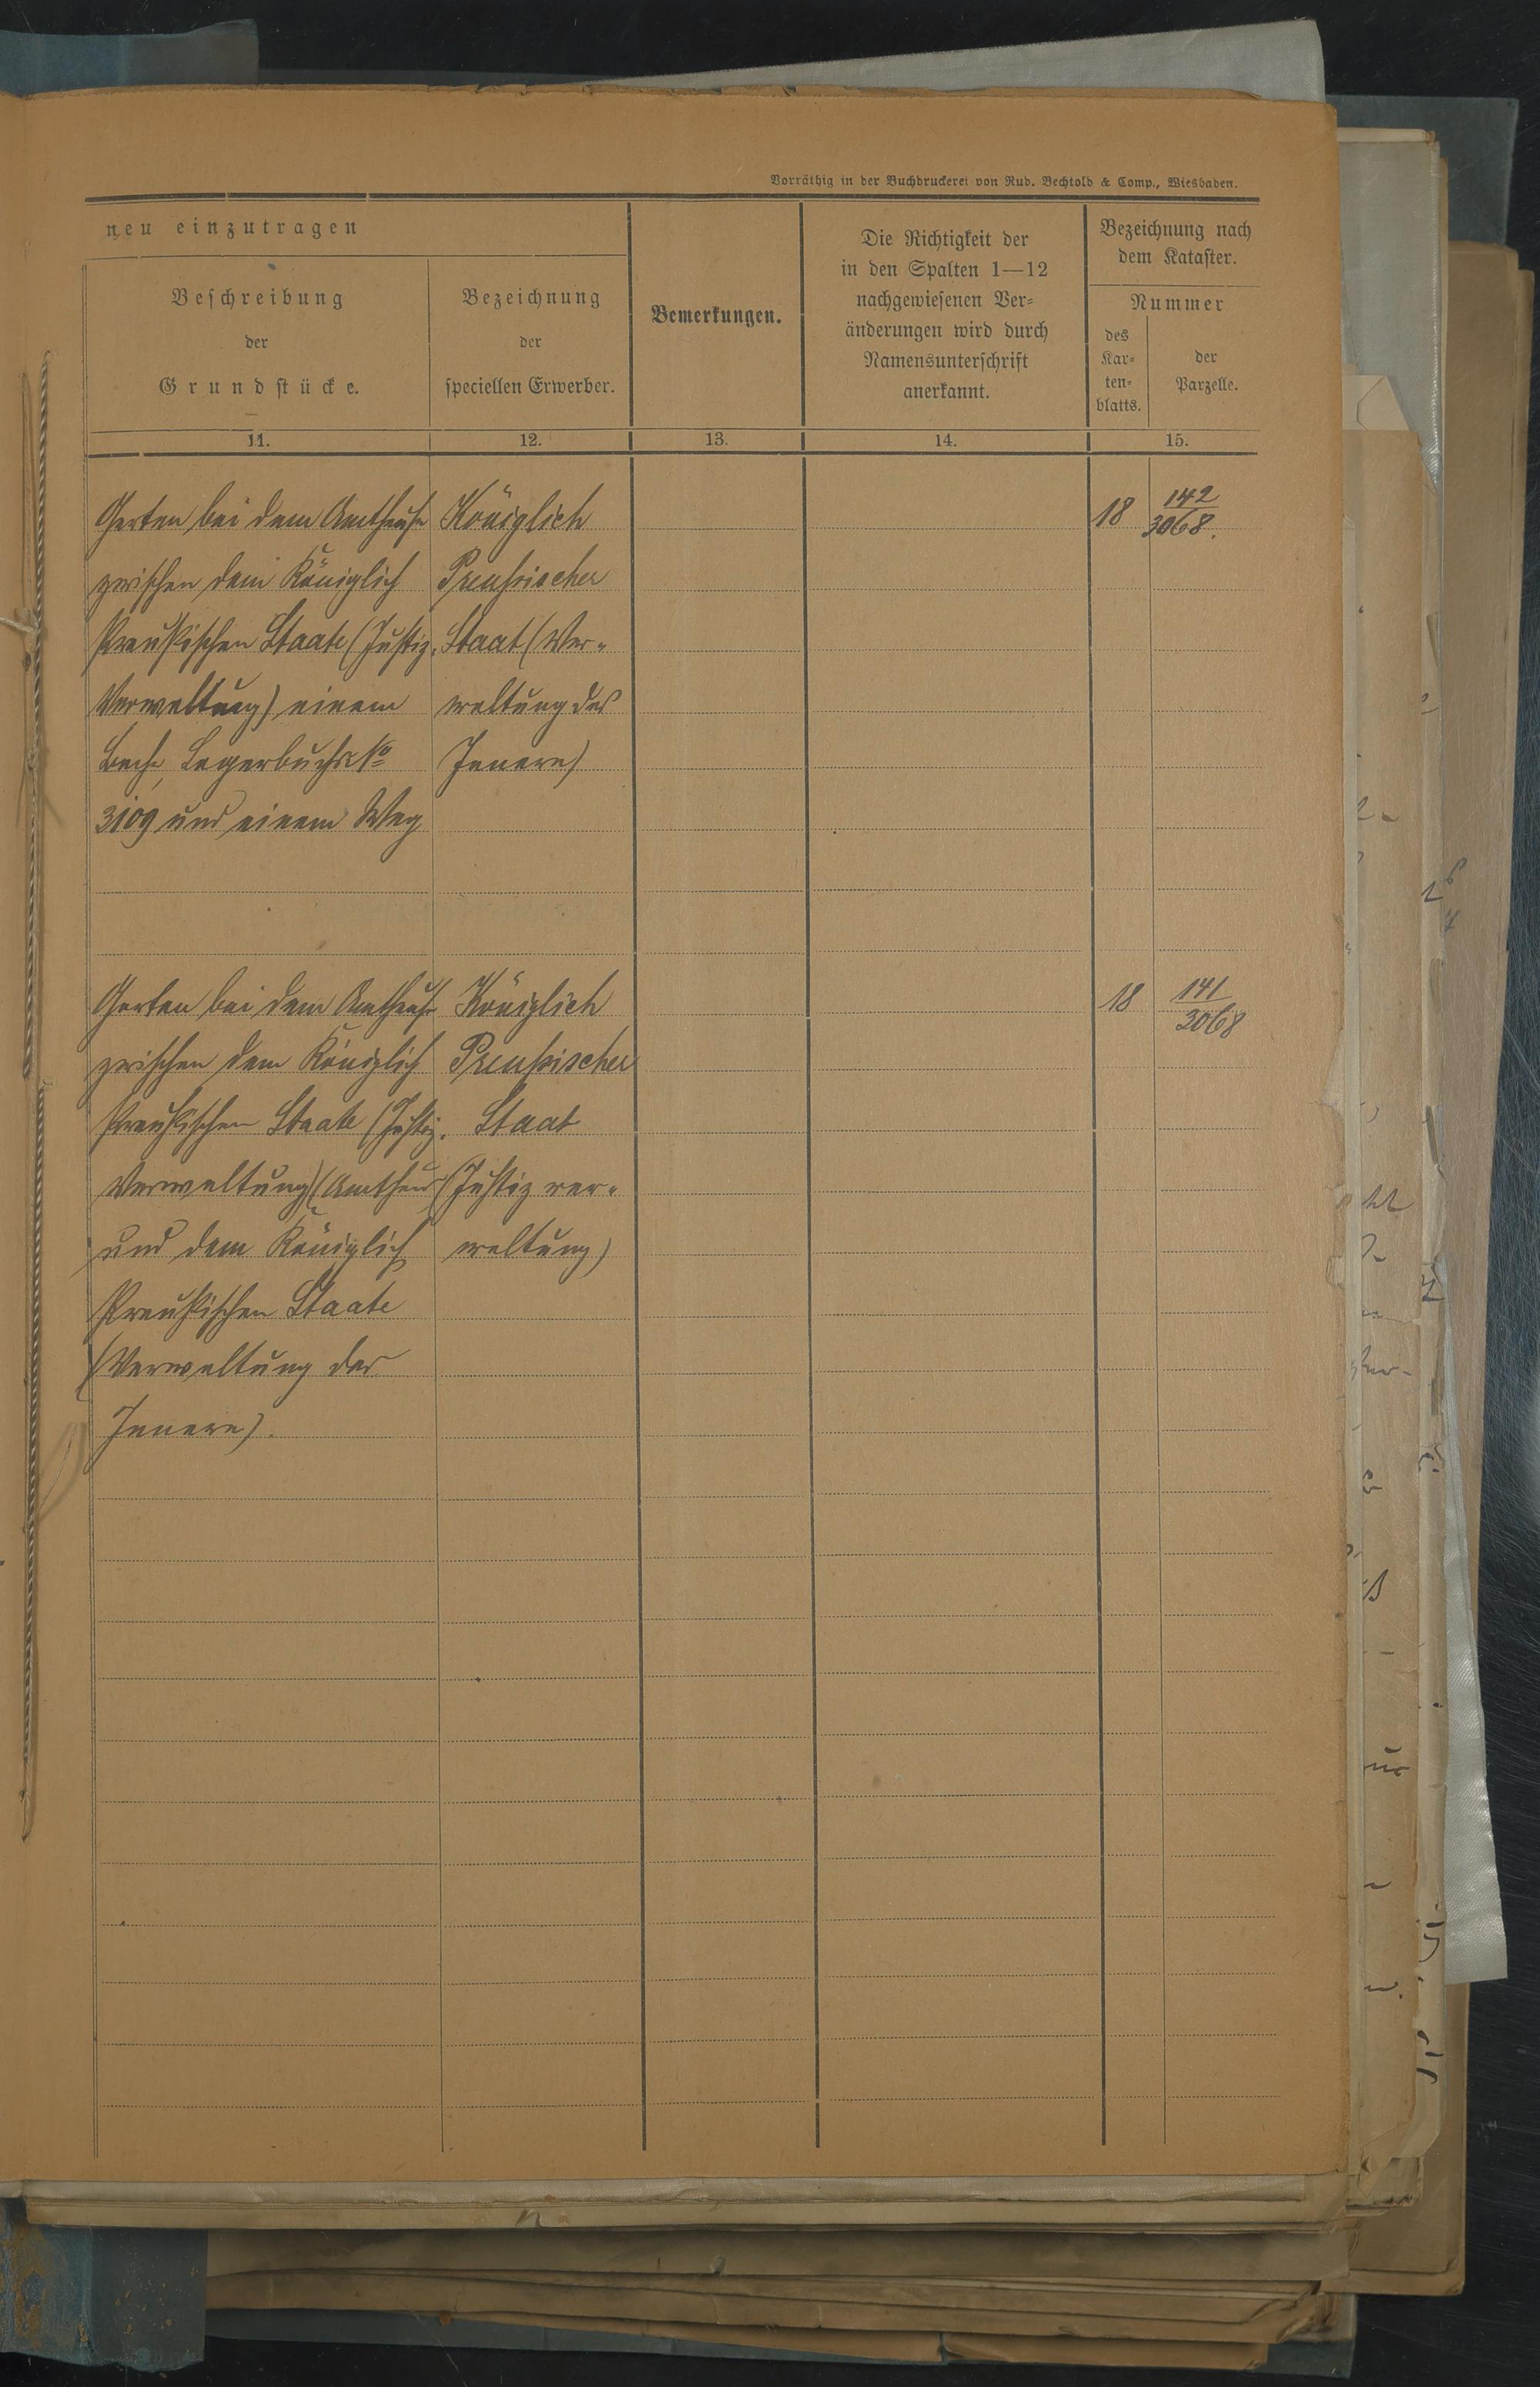 Vorräthig in der Buchdruckerei von Rud. Bechtold & Comp., Wiesbaden.
neu einzutragen
Beschreibung
der
Grundstücke.
Bezeichnung
der
speciellen Erwerber.
Bemerkungen.
Die Richtigkeit der
in den Spalten 1—12
nachgewiesenen Ver-
änderungen wird durch
Namensunterschrift
anerkannt.
Bezeichnung nach
dem Kataster.
Nummer
des
Kar-
ten-
blatts.
der
Parzelle.
11.
12.
13.
14.
15.
Garten bei dem Amthause
zwischen dem Königlich
Preußischen Staate (Justiz-
Verwaltung) einem
Bach, Lagerbuchs No
3109 und einem Weg
Königlich
Preußischer
Staat (Ver-
waltung des
Innern)
18
142
3068.
Garten bei dem Amthause
zwischen dem Königlich
Preußischen Staate (Justiz-
Verwaltung) (Amthaus)
und dem Königlich
Preußischen Staate
(Verwaltung des
Innern).
Königlich
Preußischer
Staat
(Justizver-
waltung)
18
141
3068